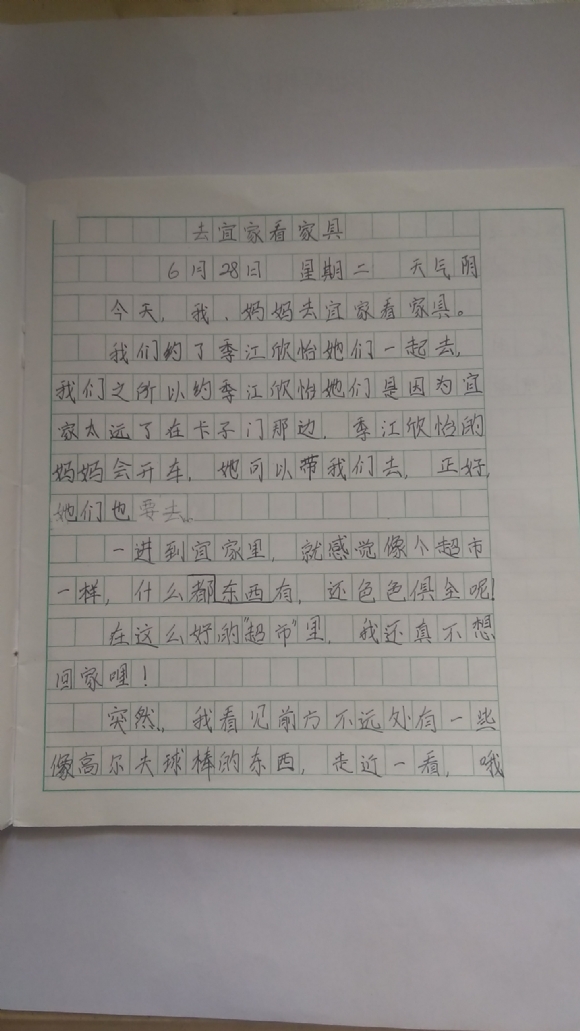 去宜家看家具
6月28日 星期二 天气阴
今天，我、妈妈去宜家看家具。
我们约了季江欣怡她们一起去，
我们之所以约季江欣怡她们是因为宜
家太远了在卡子门那边，季江欣怡的
妈妈会开车，她可以带我们去，正好，
她们也要去。
一进到宜家里，就感觉像个超市
一样，什么都东西有，还色色俱全呢！
在这么好的"超市"里，我还真不想
回家哩！
突然，我看见前方不远处有一些
像高尔夫球棒的东西，走近一看，哦